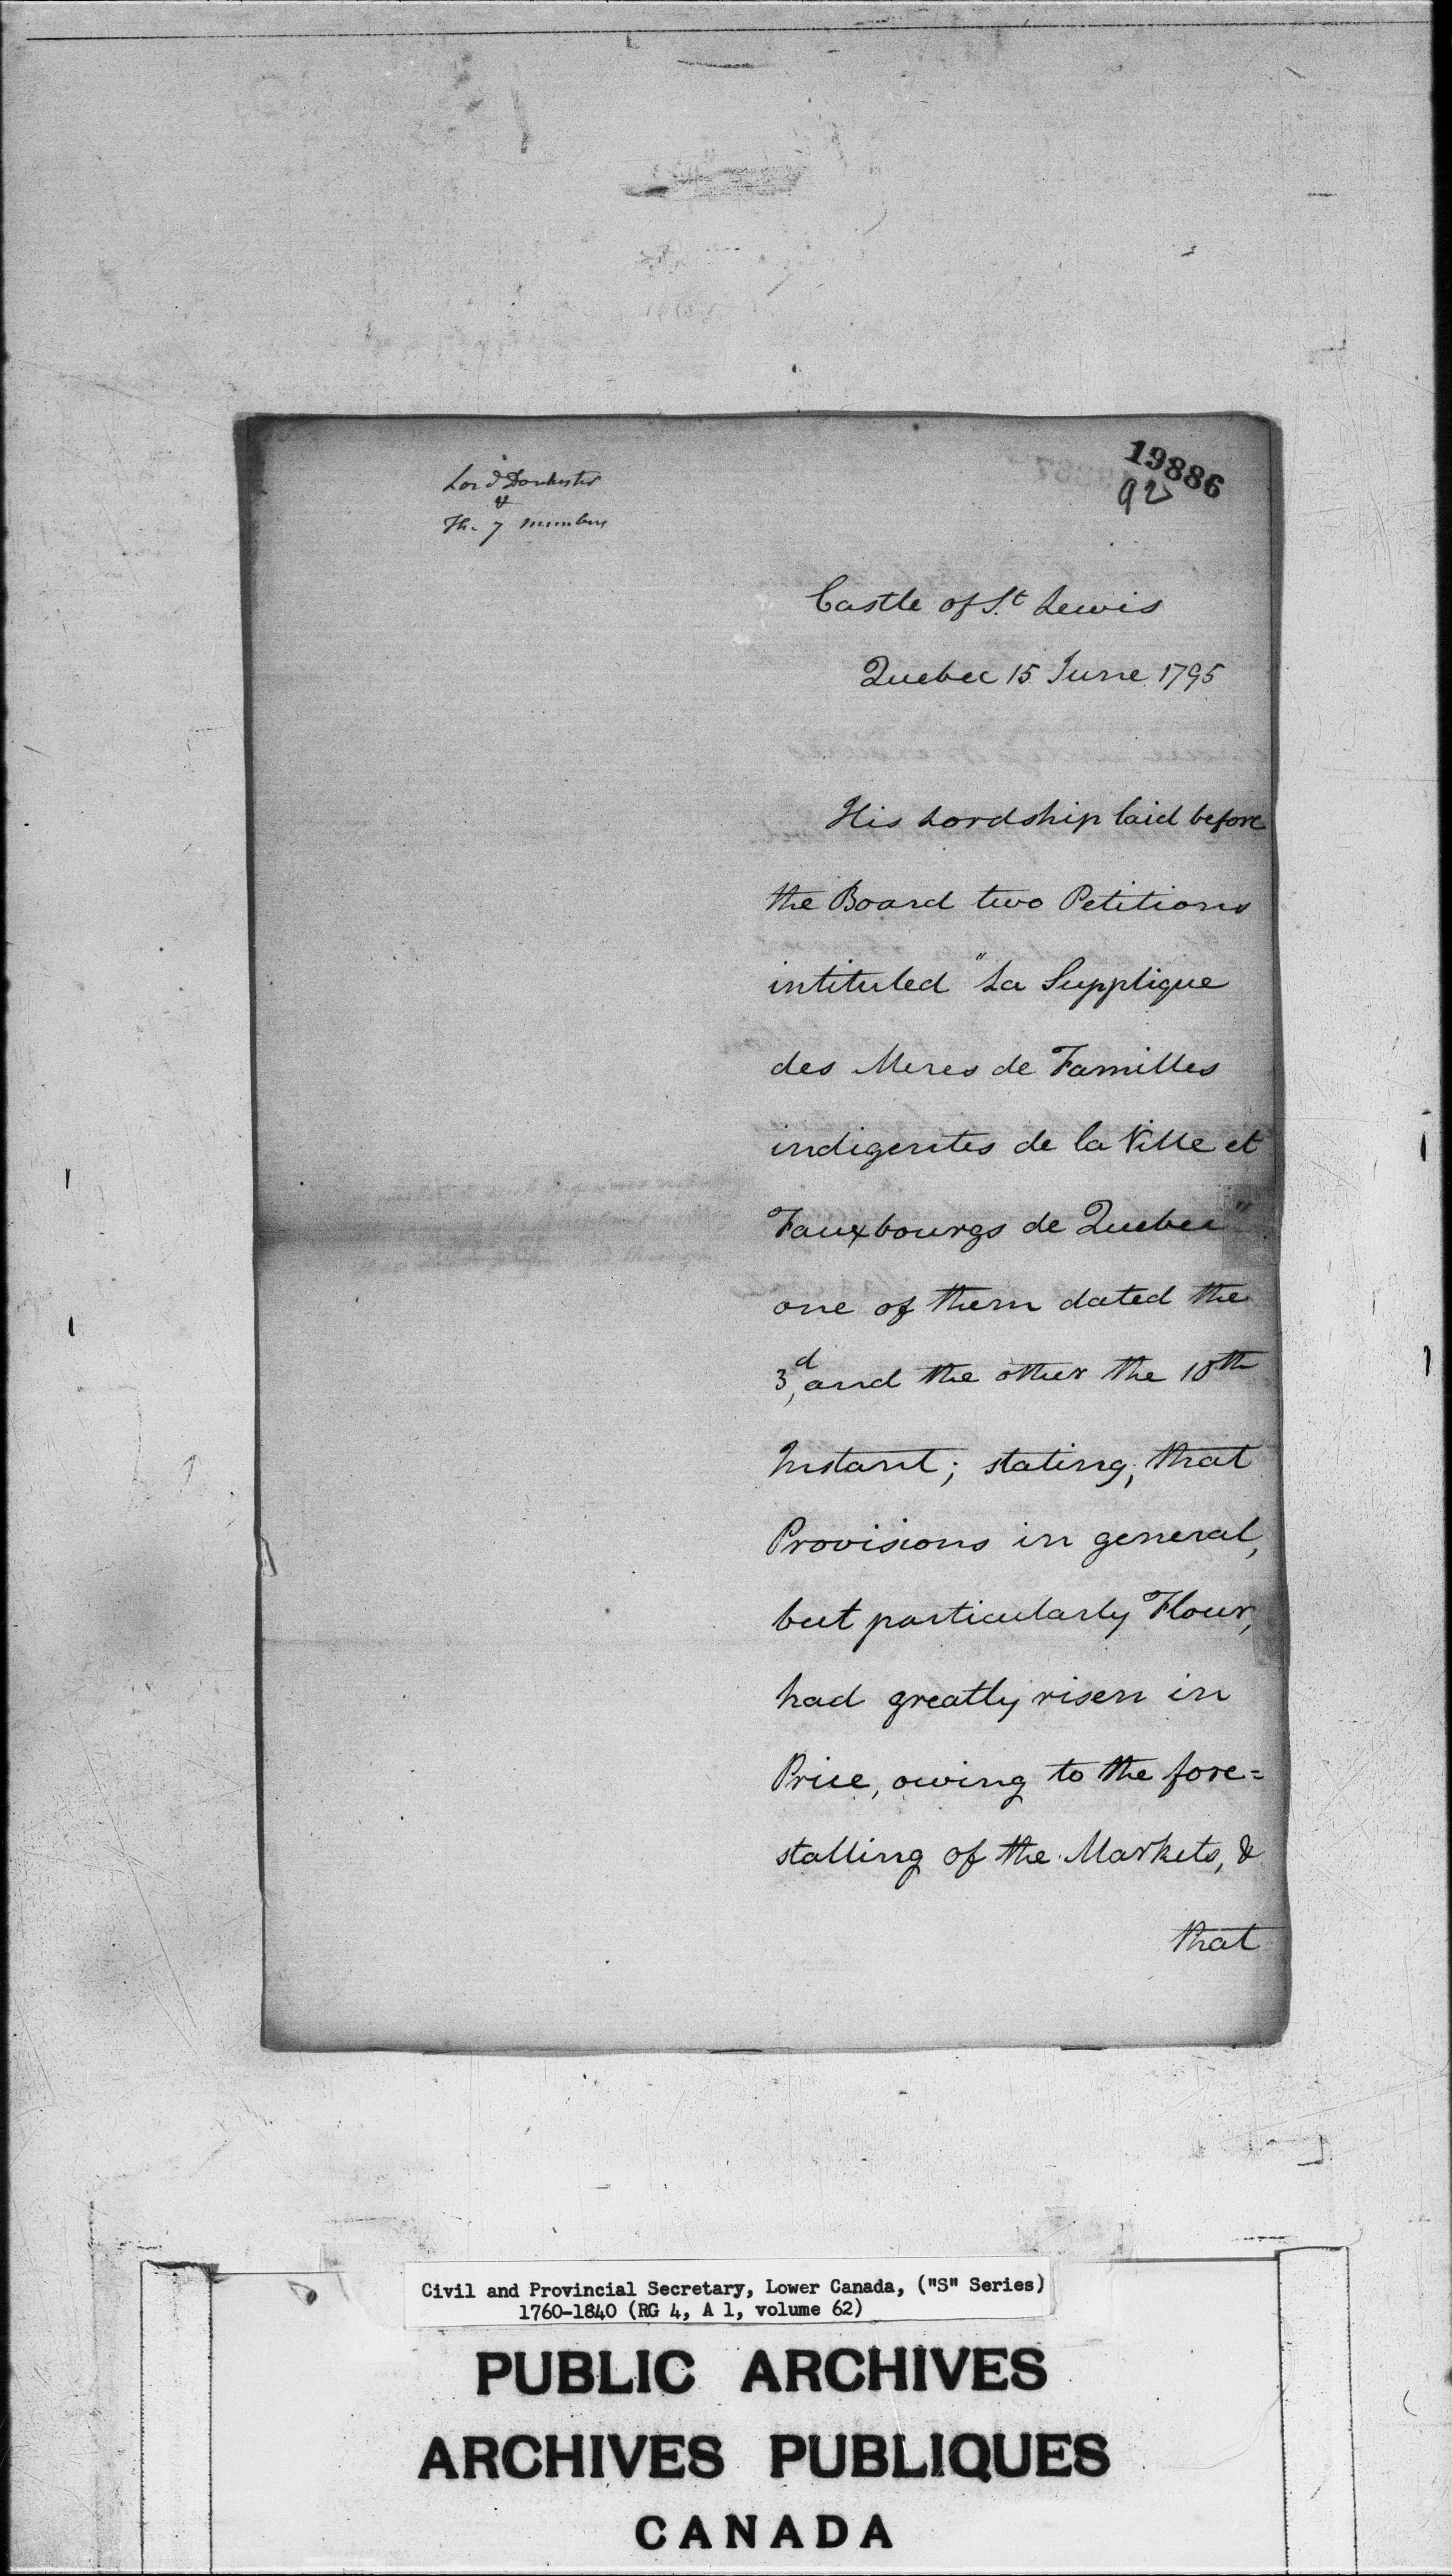 19886
92
Lord Dorchester
&
Th. 7 members
Castle of St. Lewis
Quebec 15 June 1795
His Lordship laid before
the Board two Petitions
intituled "La Supplique
des Meres de Familles
indigentes de la Ville et
Fauxbourgs de Quebec"
one of them dated the
3d, and the other the 10th
Instant; stating, that
Provisions in general,
but particularly Flour,
had greatly risen in
Price, owing to the fore=
stalling of the Markets, &
that
Civil and Provincial Secretary, Lower Canada, ("S" Series)
1760-1840 (RG 4, A 1, volume 62)
PUBLIC ARCHIVES
ARCHIVES PUBLIQUES
CANADA